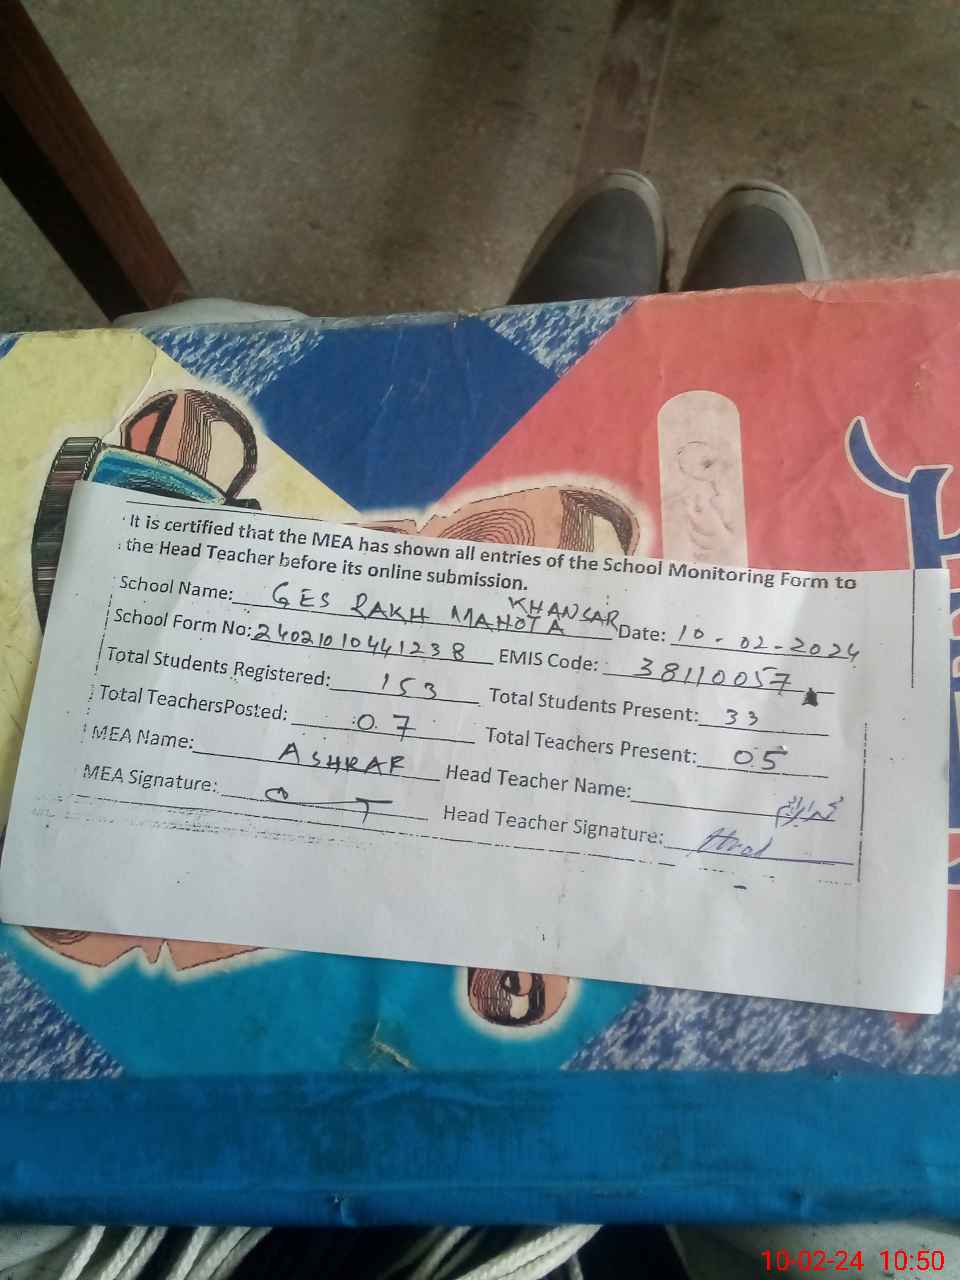 It is certified that the MEA has shown all entries of the School Monitoring Form to
the Head Teacher before its online submission.
School Name: GES RAKH MAHOTA KHANSAR Date: 10-02-2024
School Form No: 24021010441238 EMIS Code: 38110057
Total Students Registered: 153 Total Students Present: 33
Total TeachersPosted: 07 Total Teachers Present: 05
MEA Name: ASHRAF Head Teacher Name:
MEA Signature: Head Teacher Signature:
10-02-24 10:50